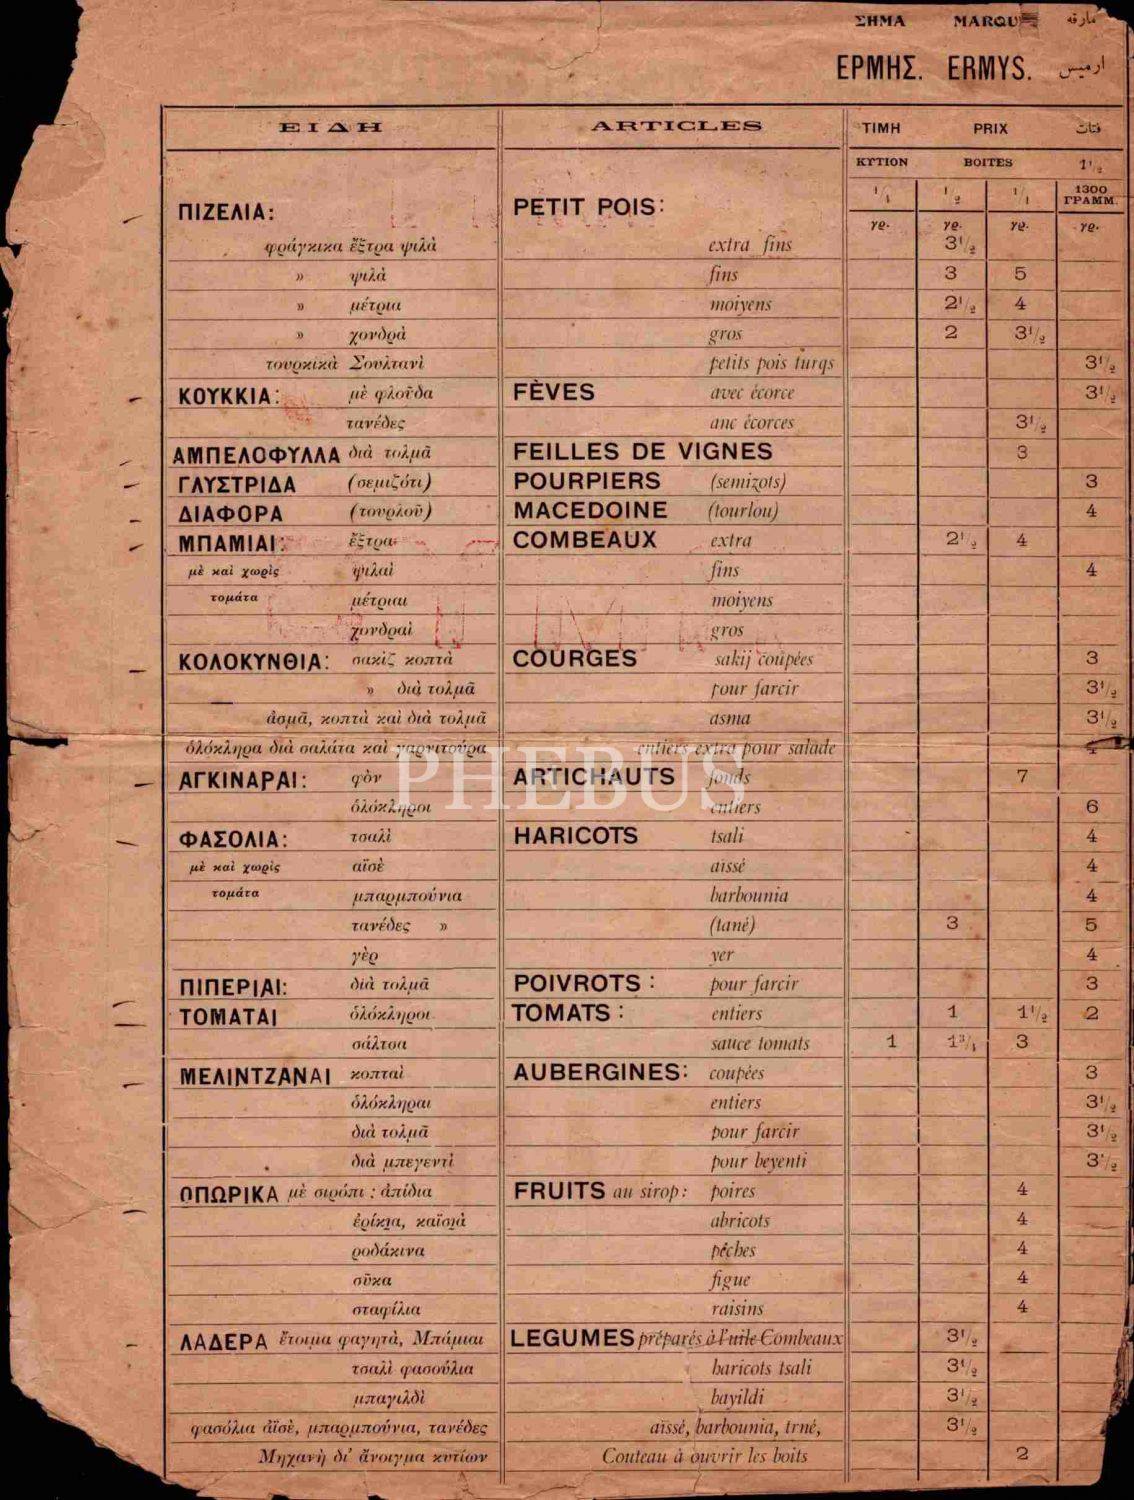 ΣΗΜΑ MARQUE مارقه
ΕΡΜΗΣ. ERMYS. ارميس
ΕΙΔΗ ARTICLES ΤΙΜΗ PRIX فئات
ΚΥΤΙΟΝ BOITES 1 1/2
1/4 1/2 1/1 1300 ΓΡΑΜΜ.
ΠΙΖΕΛΙΑ: PETIT POIS: γρ. γρ. γρ. γρ.
φράγκικα ἔξτρα ψιλὰ extra fins 3 1/2
» ψιλὰ fins 3 5
» μέτρια moiyens 2 1/2 4
» χονδρὰ gros 2 3 1/2
τουρκικὰ Σουλτανὶ petits pois turqs 3 1/2
ΚΟΥΚΚΙΑ: μὲ φλοῦδα FÈVES avec écorce 3 1/2
τανέδες anc écorces 3 1/2
ΑΜΠΕΛΟΦΥΛΛΑ διὰ τολμᾶ FEILLES DE VIGNES 3
ΓΛΥΣΤΡΙΔΑ (σεμιζότι) POURPIERS (semizots) 3
ΔΙΑΦΟΡΑ (τουρλοῦ) MACEDOINE (tourlou) 4
ΜΠΑΜΙΑΙ: ἔξτρα COMBEAUX extra 2 1/2 4
μὲ καὶ χωρὶς ψιλαὶ fins 4
τομάτα μέτριαι moiyens
χονδραὶ gros
ΚΟΛΟΚΥΝΘΙΑ: σακὶζ κοπτὰ COURGES sakij coupées 3
» διὰ τολμᾶ pour farcir 3 1/2
ἀσμᾶ, κοπτὰ καὶ διὰ τολμᾶ asma 3 1/2
ὁλόκληρα διὰ σαλάτα καὶ γαρνιτούρα entiers extra pour salade 4
PHEBUS
ΑΓΚΙΝΑΡΑΙ: φὸν ARTICHAUTS fonds 7
ὁλόκληροι entiers 6
ΦΑΣΟΛΙΑ: τσαλὶ HARICOTS tsali 4
μὲ καὶ χωρὶς αἴσὲ aissé 4
τομάτα μπαρμπούνια barbounia 4
τανέδες » (tané) 3 5
γὲρ yer 4
ΠΙΠΕΡΙΑΙ: διὰ τολμᾶ POIVROTS: pour farcir 3
ΤΟΜΑΤΑΙ ὁλόκληροι TOMATS: entiers 1 1 1/2 2
σάλτσα sauce tomats 1 1 3/4 3
ΜΕΛΙΝΤΖΑΝΑΙ κοπταὶ AUBERGINES: coupées 3
ὁλόκληραι entiers 3 1/2
διὰ τολμᾶ pour farcir 3 1/2
διὰ μπεγεντὶ pour beyenti 3 1/2
ΟΠΩΡΙΚΑ μὲ σιρόπι: ἀπίδια FRUITS au sirop: poires 4
ἐρίκια, καϊσιὰ abricots 4
ροδάκινα pêches 4
σῦκα figue 4
σταφίλια raisins 4
ΛΑΔΕΡΑ ἔτοιμα φαγητὰ, Μπάμιαι LEGUMES préparés à l'uile Combeaux 3 1/2
τσαλὶ φασούλια haricots tsali 3 1/2
μπαγιλδὶ bayildi 3 1/2
φασόλια ἀϊσὲ, μπαρμπούνια, τανέδες aissé, barbounia, trné, 3 1/2
Μηχανὴ δι' ἄνοιγμα κυτίων Couteau à ouvrir les boits 2